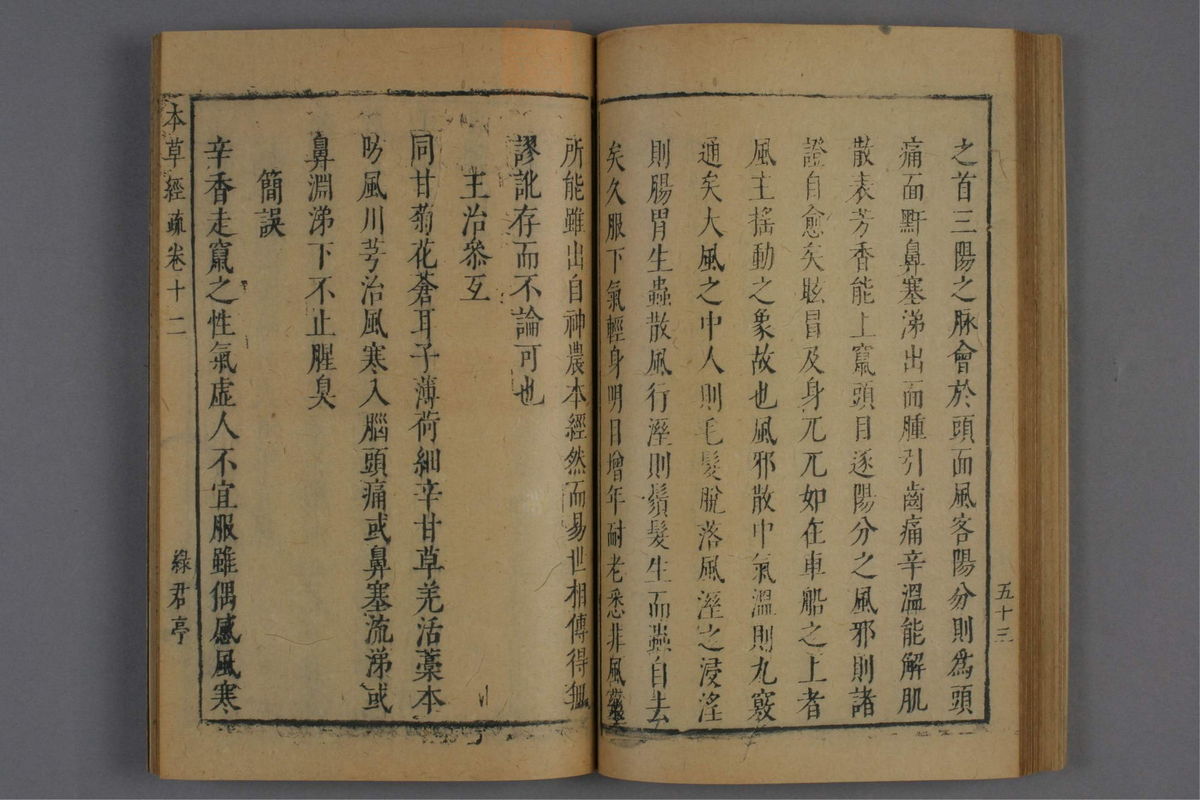 五十三
之首三陽之脉會於頭面風客陽分則爲頭
痛面䵟鼻塞涕出面腫引齒痛辛溫能解肌
散表芳香能上竄頭目逐陽分之風邪則諸
證自愈矣眩冒及身兀兀如在車船之上者
風主搖動之象故也風邪散中氣溫則九竅
通矣大風之中人則毛髮脫落風溼之浸淫
則腸胃生蟲散風行溼則鬚髮生而蟲自去
矣久服下氣輕身明目增年耐老悉非風藥
所能雖出自神農本經然而易世相傳得無
謬訛存而不論可也
主治叅互
同甘菊花蒼耳子薄荷細辛甘草羌活藁本
防風川芎治風寒入腦頭痛或鼻塞流涕或
鼻淵涕下不止腥臭
簡誤
辛香走竄之性氣虛人不宜服雖偶感風寒
本草經疏卷十二
綠君亭